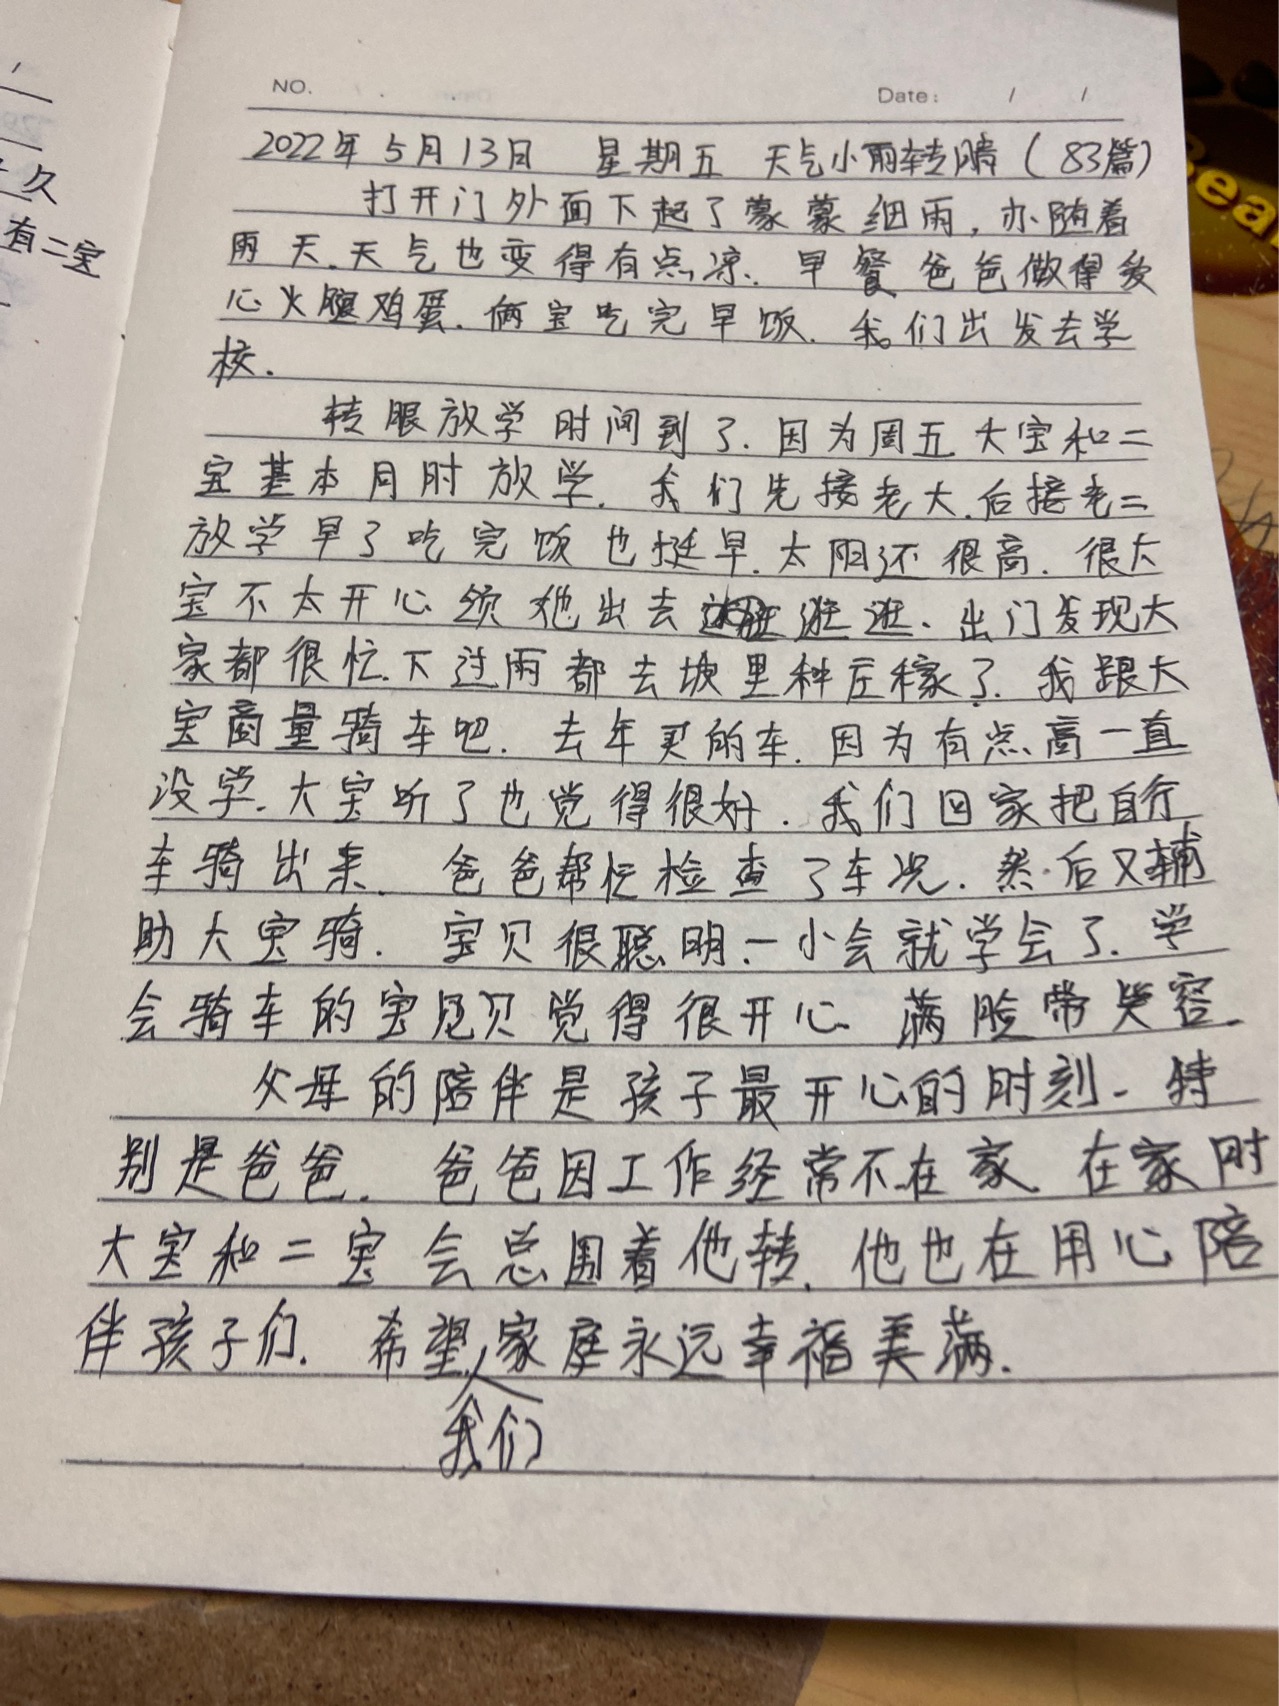 NO.
Date: / /
2022年5月13日 星期五 天气小雨转晴(83篇)
打开门外面下起了蒙蒙细雨,亦随着
雨天.天气也变得有点凉.早餐爸爸做得爱
心火腿鸡蛋.俩宝吃完早饭.我们出发去学
校.
转眼放学时间到了.因为周五大宝和二
宝基本同时放学.我们先接老大.后接老二
放学早了吃完饭也挺早.太阳还很高.但大
宝不太开心领他出去逛逛.出门发现大
家都很忙.下过雨都去坡里种庄稼了.我跟大
宝商量骑车吧.去年买的车.因为有点高一直
没学.大宝听了也觉得很好.我们回家把自行
车骑出来.爸爸帮忙检查了车况.然后又辅
助大宝骑.宝贝很聪明.一小会就学会了.学
会骑车的宝贝觉得很开心.满脸带笑容.
父母的陪伴是孩子最开心的时刻.特
别是爸爸.爸爸因工作经常不在家.在家时
大宝和二宝会总围着他转.他也在用心陪
伴孩子们.希望家庭永远幸福美满.
我们
久
有二宝
Bea